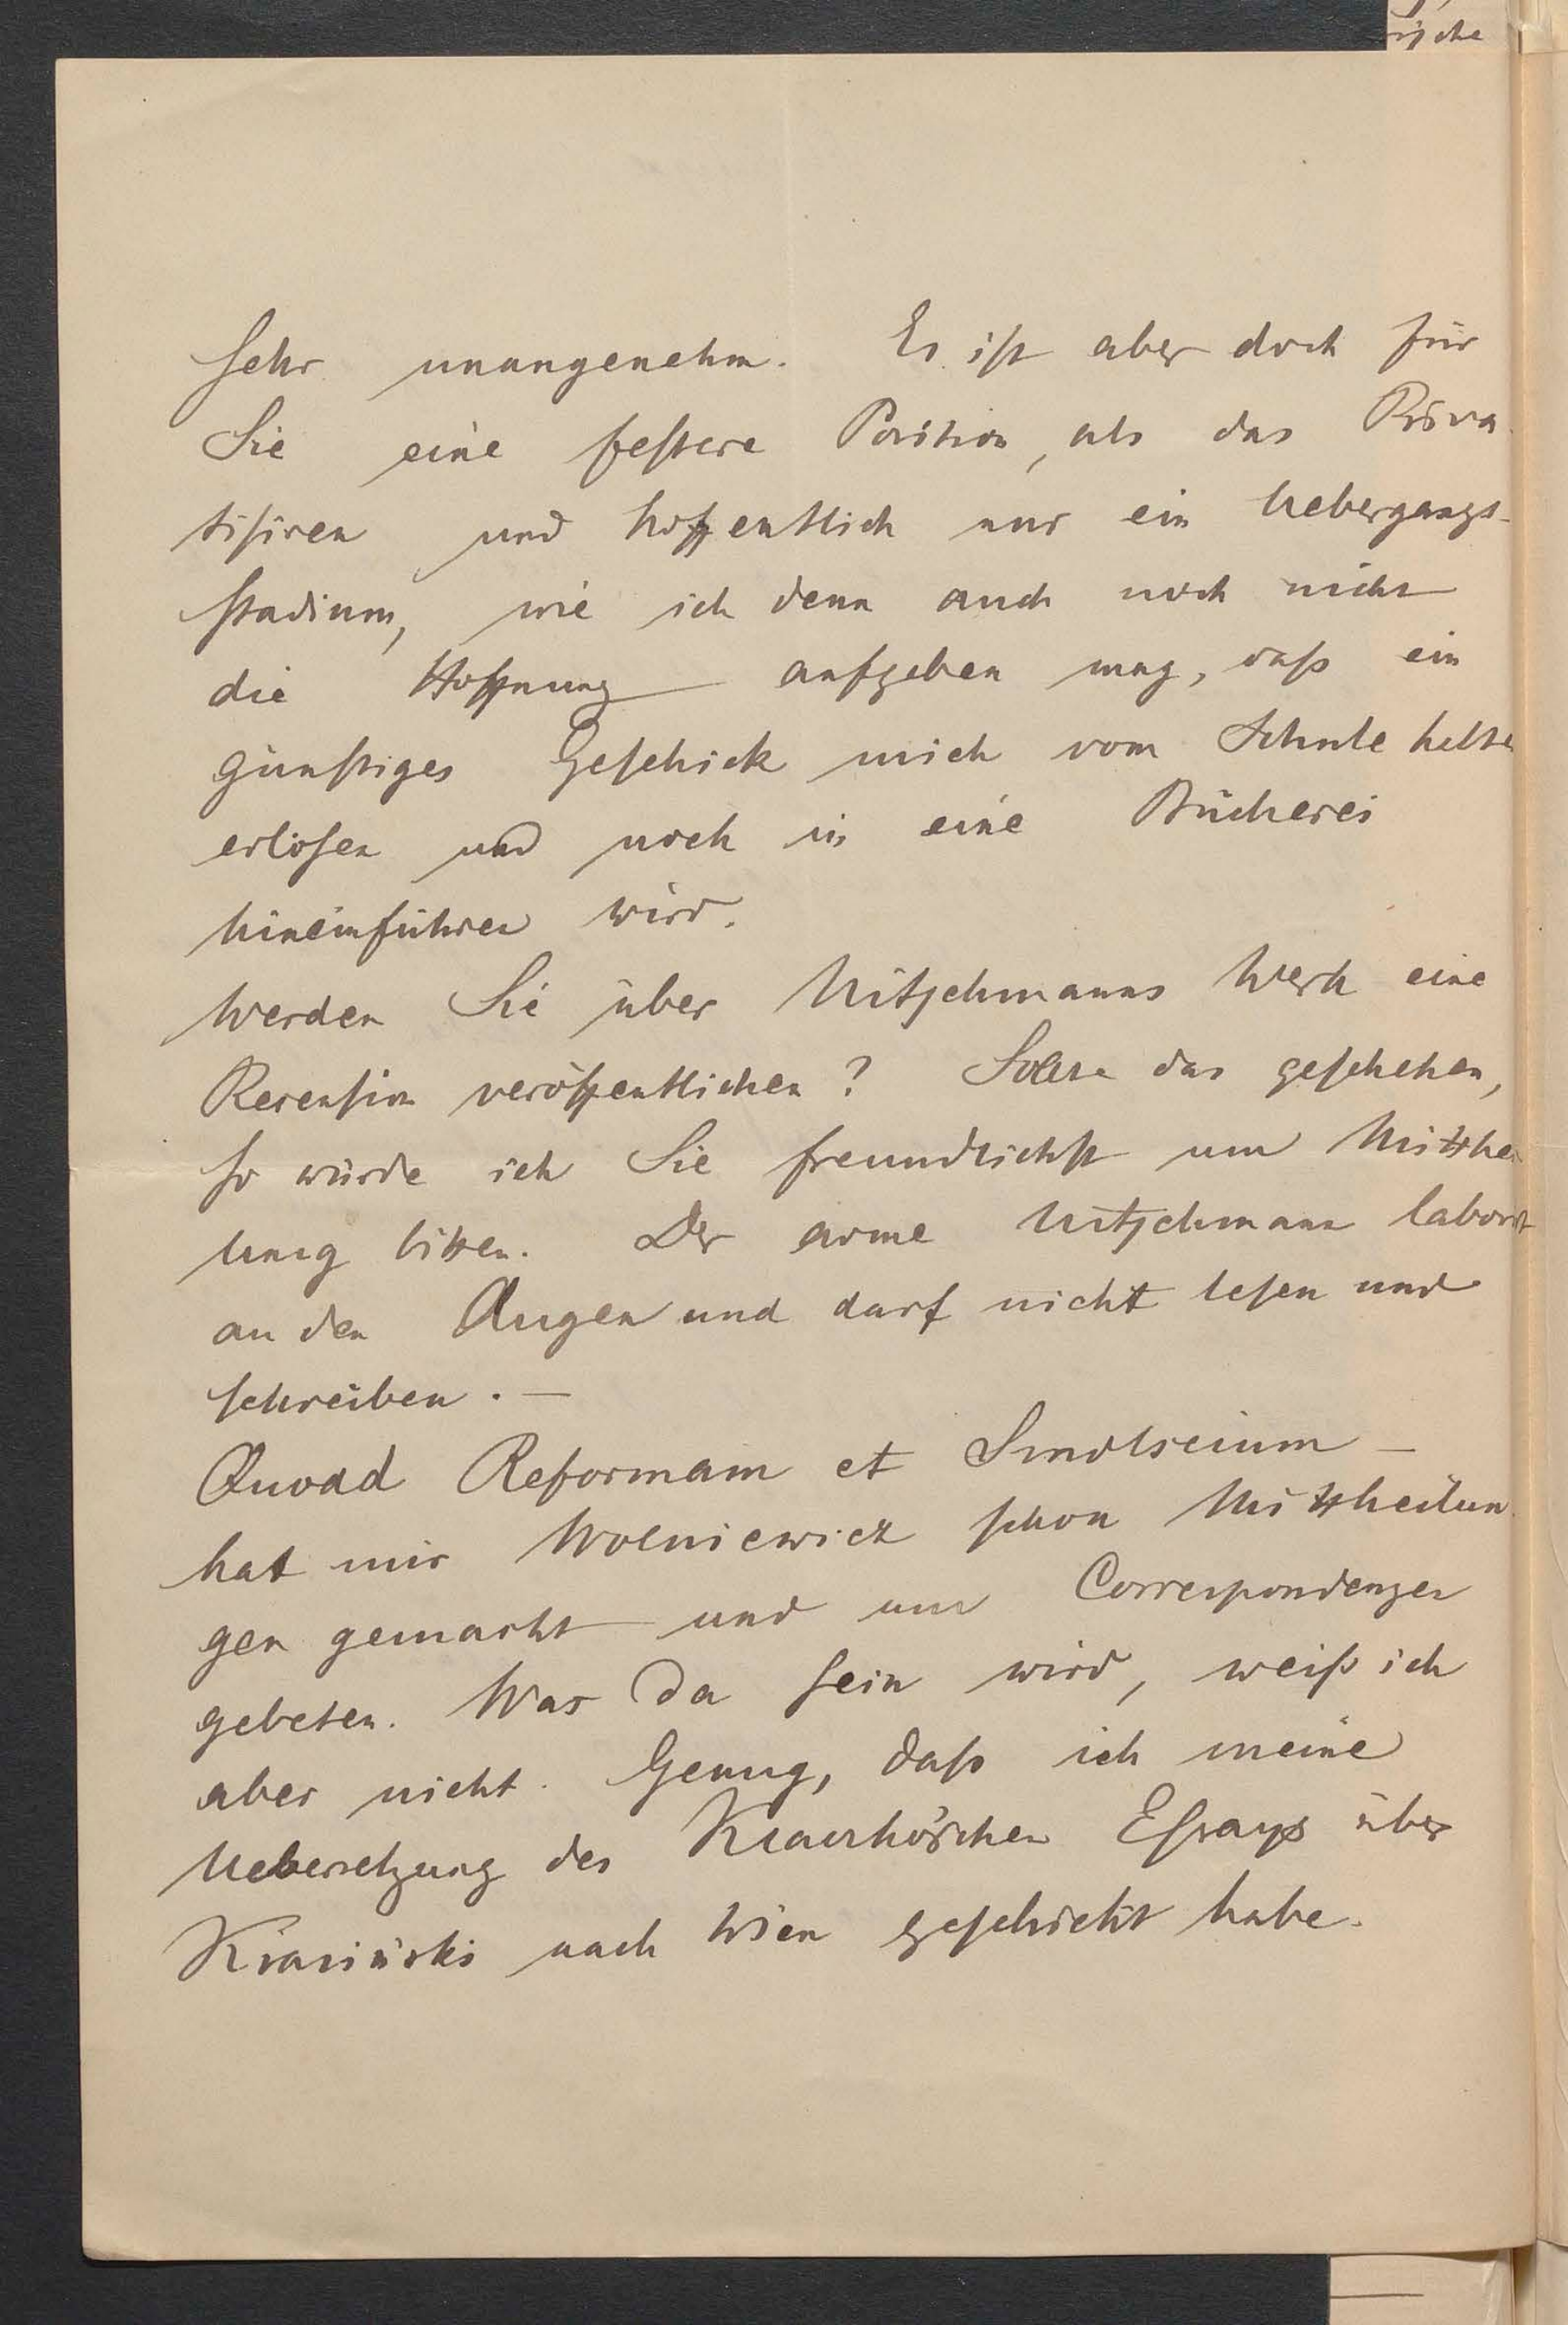 ische
sehr unangenehm. Es ist aber doch für
Sie eine festere Position, als das Priva-
tisiren und hoffentlich nur ein Uebergangs-
stadium, wie ich denn auch noch nicht
die Hoffnung aufgeben mag, daß ein
günstiges Geschick mich vom Schule halten
erlösen und noch in eine Bücherei
hineinführen wird.
Werden Sie über Nitschmanns Werk eine
Recension veröffentlichen? Sollte das geschehen,
so würde ich Sie freundlichst um Mitthei
lung bitten. Der arme Nitschmann laborirt
an den Augen und darf nicht lesen und
schreiben. —
Quoad Reformam et Smolscium —
hat mir Wolniewicz schon Mittheilun
gen gemacht und um Correspondenzen
gebeten. Was da sein wird, weiß ich
aber nicht. Genug, daß ich meine
Uebersetzung des Essays über
Krasiński nach Wien geschickt habe.